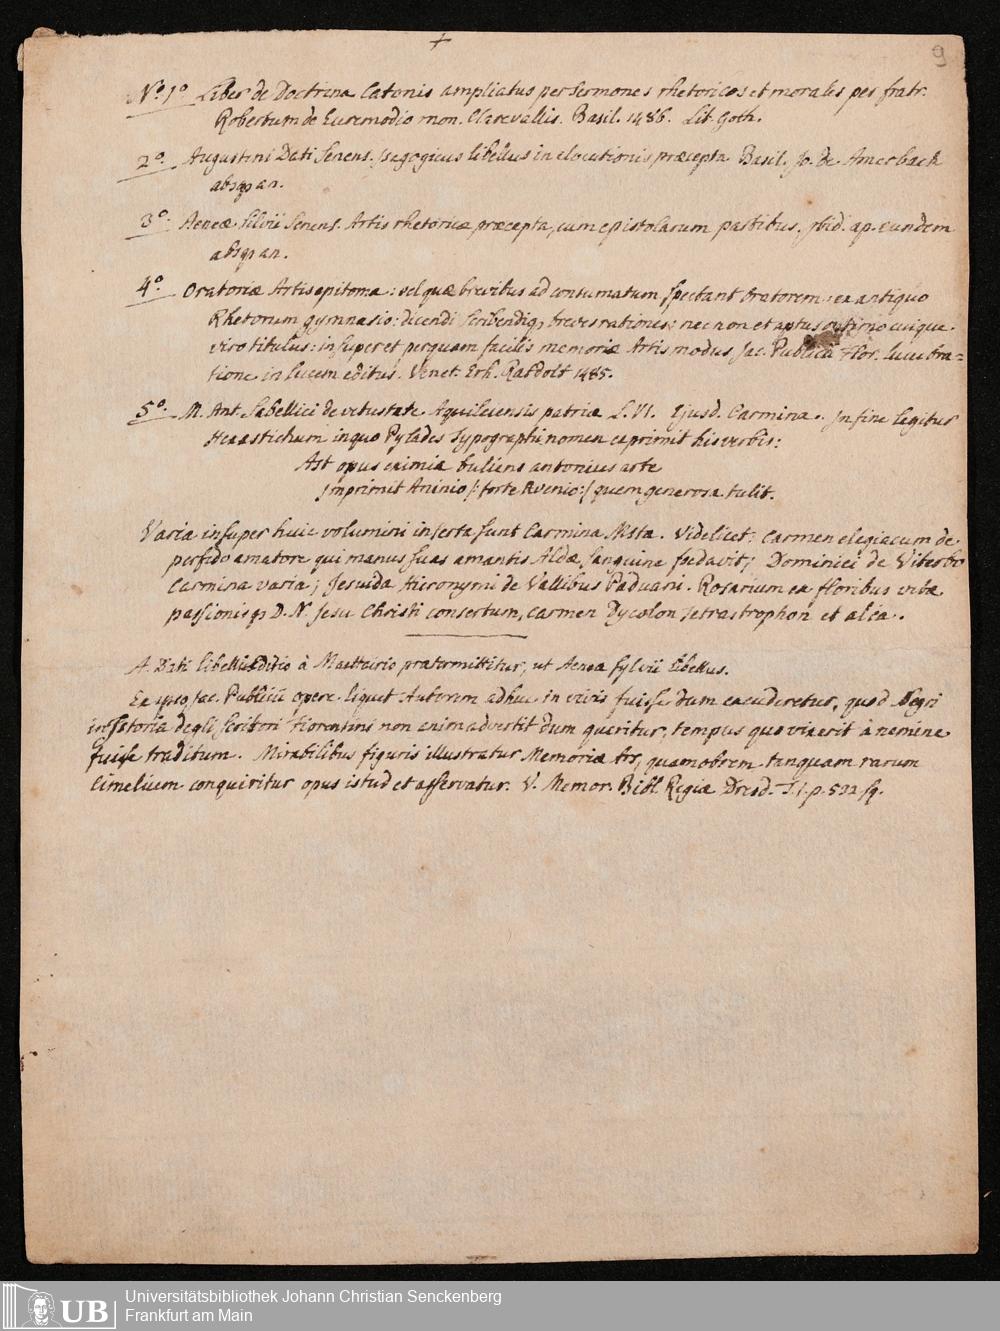 +
9
N.º 1º Liber de Doctrina Catonis ampliatus per Sermones rhetoricos et morales per fratr.
Robertum de Euremodio mon. Clarevallis. Basil. 1486. Lit. Goth.
2º. Augustini Dati Senens. Isagogicus libellus in elocutionis præcepta Basil. Jo. de Amerbach
absq an.
3º. Aeneæ Silvii Senens. Artis rhetoricæ præcepta, cum epistolarum partibus. Ibid. ap. eundem
absq an.
4º. Oratoriæ Artis epitoma: vel quæ brevibus ad consumatum spectant Oratorem: ex antiquo
Rhetorum gymnasio: dicendi scribendiq breves rationes: nec non et aptus optimo cuique
viro titulus: insuper et perquam facilis memoriæ Artis modus Jac. Publicii Flor. lucubra=
tione in lucem editus. Venet. Erh. Ratdolt 1485.
5º. M. Ant. Sabellici de vetustate Aquileiensis patriæ L. VI. Ejusd. Carmina. In fine legitur
Hexastichum in quo Pylades Typographi nomen exprimit his verbis:
Ast opus eximia tuliens antonius arte
Imprimit Aninio /: forte Avenio :/ quem generosa tulit.
Varia insuper huic volumini inserta sunt Carmina Msta. Videlicet: Carmen elegiacum de
perfido amatore qui manus suas amantis Aldæ sanguine foedavit; Dominici de Viterbo
Carmina varia; Jesuida Hieronymi de Vallibus Paduani. Rosarium ex floribus vitæ
passionisq D. N. Jesu Christi consertum, carmen Dycolon Tetrastrophon et alia.
A. Dati libelli Editio à Maettairio prætermittitur, ut Aeneæ Sylvii Libellus.
Ex ipso Jac. Publicii opere liquet Autorem adhuc in vivis fuisse dum excuderetur, quod Negri
in Istoria degli Scritori Fiorentini non animadvertit dum queritur, tempus quo vixerit à nemine
fuisse traditum. Mirabilibus figuris illustratur Memoriæ Ars, quamobrem tanquam rarum
Cimelium conquiritur opus istud et asservatur. V. Memor. Bibl. Regiæ Dresd. T. 1. p. 522 sq.
UB
Universitätsbibliothek Johann Christian Senckenberg
Frankfurt am Main